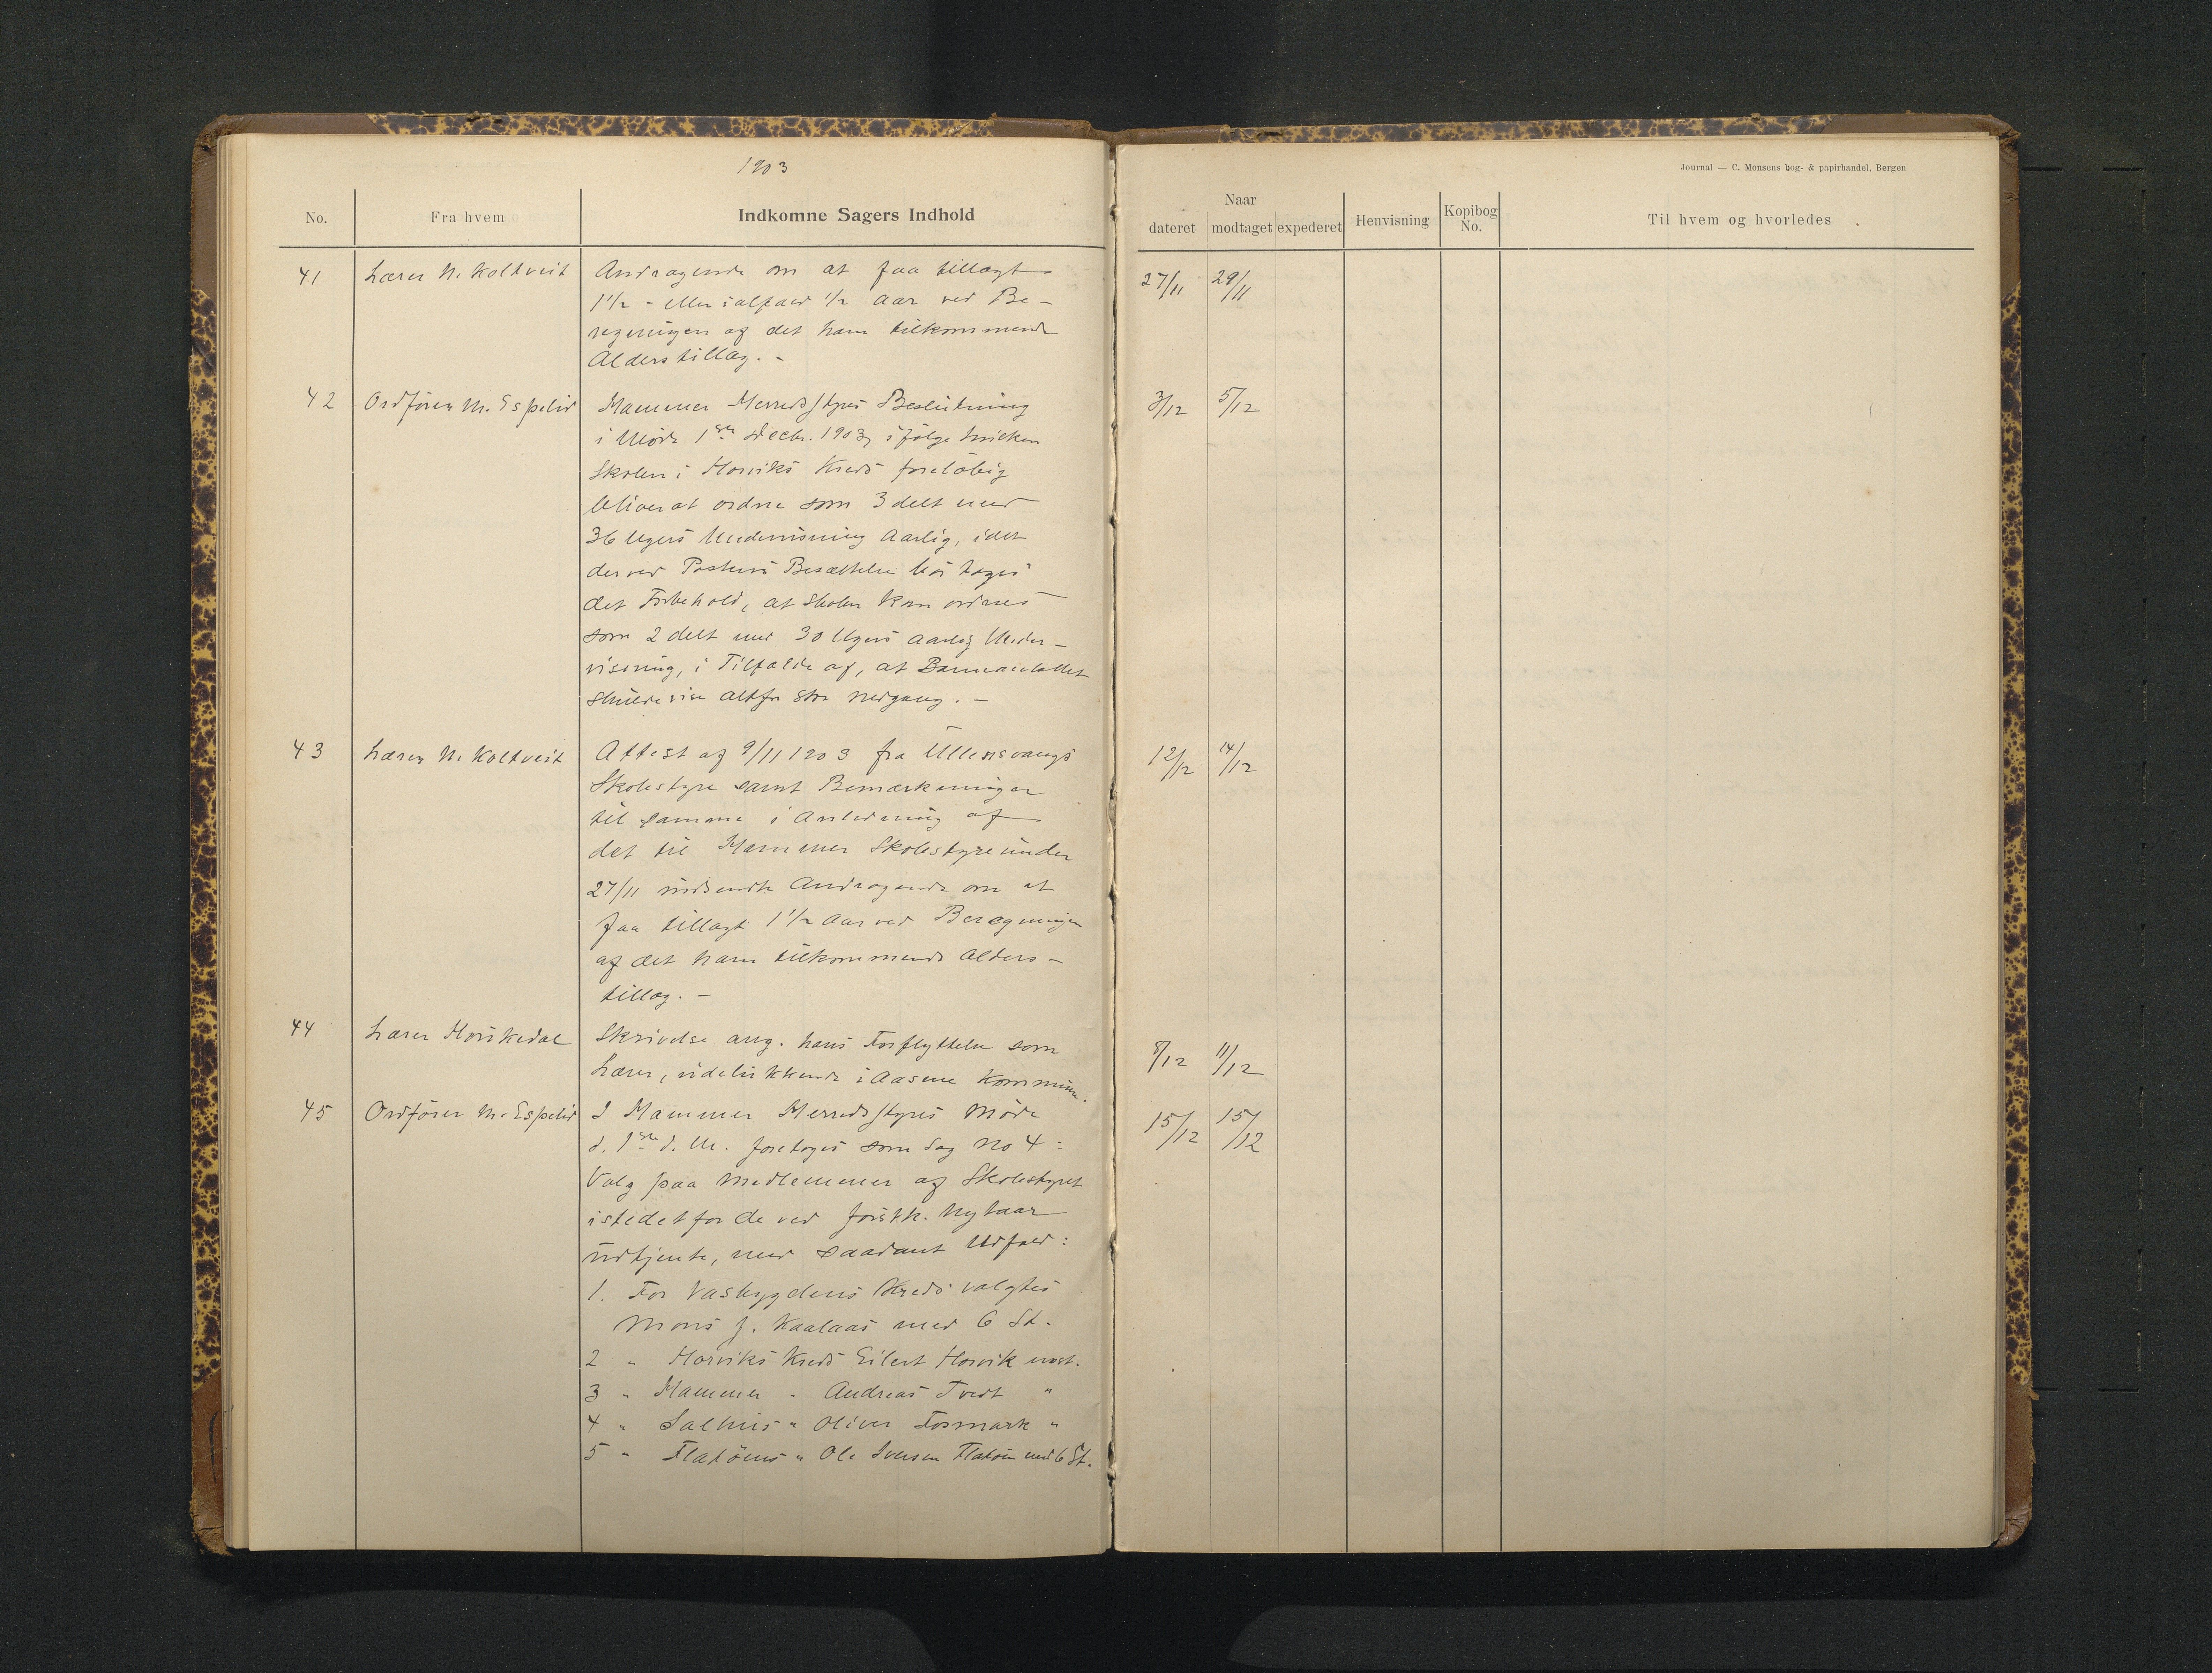 1903
Journal — C. Monsens bog- & papirhandel, Bergen
No. Fra hvem Indkomne Sagers Indhold
Naar
dateret modtaget expederet Henvisning Kopibog No. Til hvem og hvorledes
41 Lærer N. Koltveit Andragende om at faa tillagt 27/11 29/11
1 1/2 - eller ialfald 1/2 Aar ved Be-
regningen af det ham tilkommende
Alderstillæg. -
42 Ordförer M. Espelid Hammer Herredsstyres Beslutning 3/12 5/12
i Möde 1ste Decbr. 1903, ifölge hvilken
Skolen i Horviks Kreds forelöbig
bliver at ordne som 3 delt med
36 Ugers Undervisning Aarlig, idet
der ved Postens Besættelse bör tages
det Forbehold, at Skolen kan ordnes
som 2 delt med 30 Ugers aarlig Under-
visning, i Tilfælde af, at Barneantallet
skulde vise altfor stor Nedgang. -
43 Lærer N. Koltveit Attest af 9/11 1903 fra Ullensvangs 12/12 14/12
Skolestyre samt Bemærkninger
til samme i Anledning af
det til Hammer Skolestyre under
27/11 indsendte Andragende om at
faa tillagt 1 1/2 Aar ved Beregningen
af det ham tilkommende Alders-
tillæg. -
44 Lærer Horskedal Skrivelse ang. hans Forflyttelse som 8/12 11/12
Lærer, udelukkende i Aasene Kommune.
45 Ordförer M. Espelid I Hammer Herredsstyres Möde 15/12 15/12
d. 1ste d. M. foretoges som Sag No 4:
Valg paa Medlemmer af Skolestyret
istedetfor de ved förstk. Nytaar
udtjente, med saadant Udfald:
1. For Vasbygdens Kreds valgtes
Mons J. Kaalaas med 6 St.
2 " Horviks Kreds Eilert Horvik enst.
3 " Hammer " Andreas Tveit "
4 " Salhus " Oliver Fosmark "
5 " Flatöens " Ole Iversen Flatöen med 6 St.